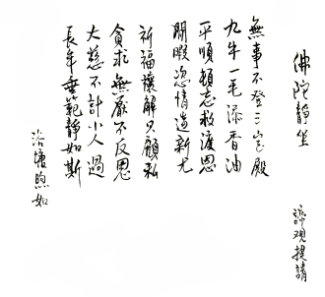 佛陀靜坐
無事不登三寶殿
九牛一毛添香油
平順頓忘救渡恩
閒暇恣情造新尤
祈福禳解只顧私
貪求無厭不反思
大慈不計小人過
長年垂範靜如斯